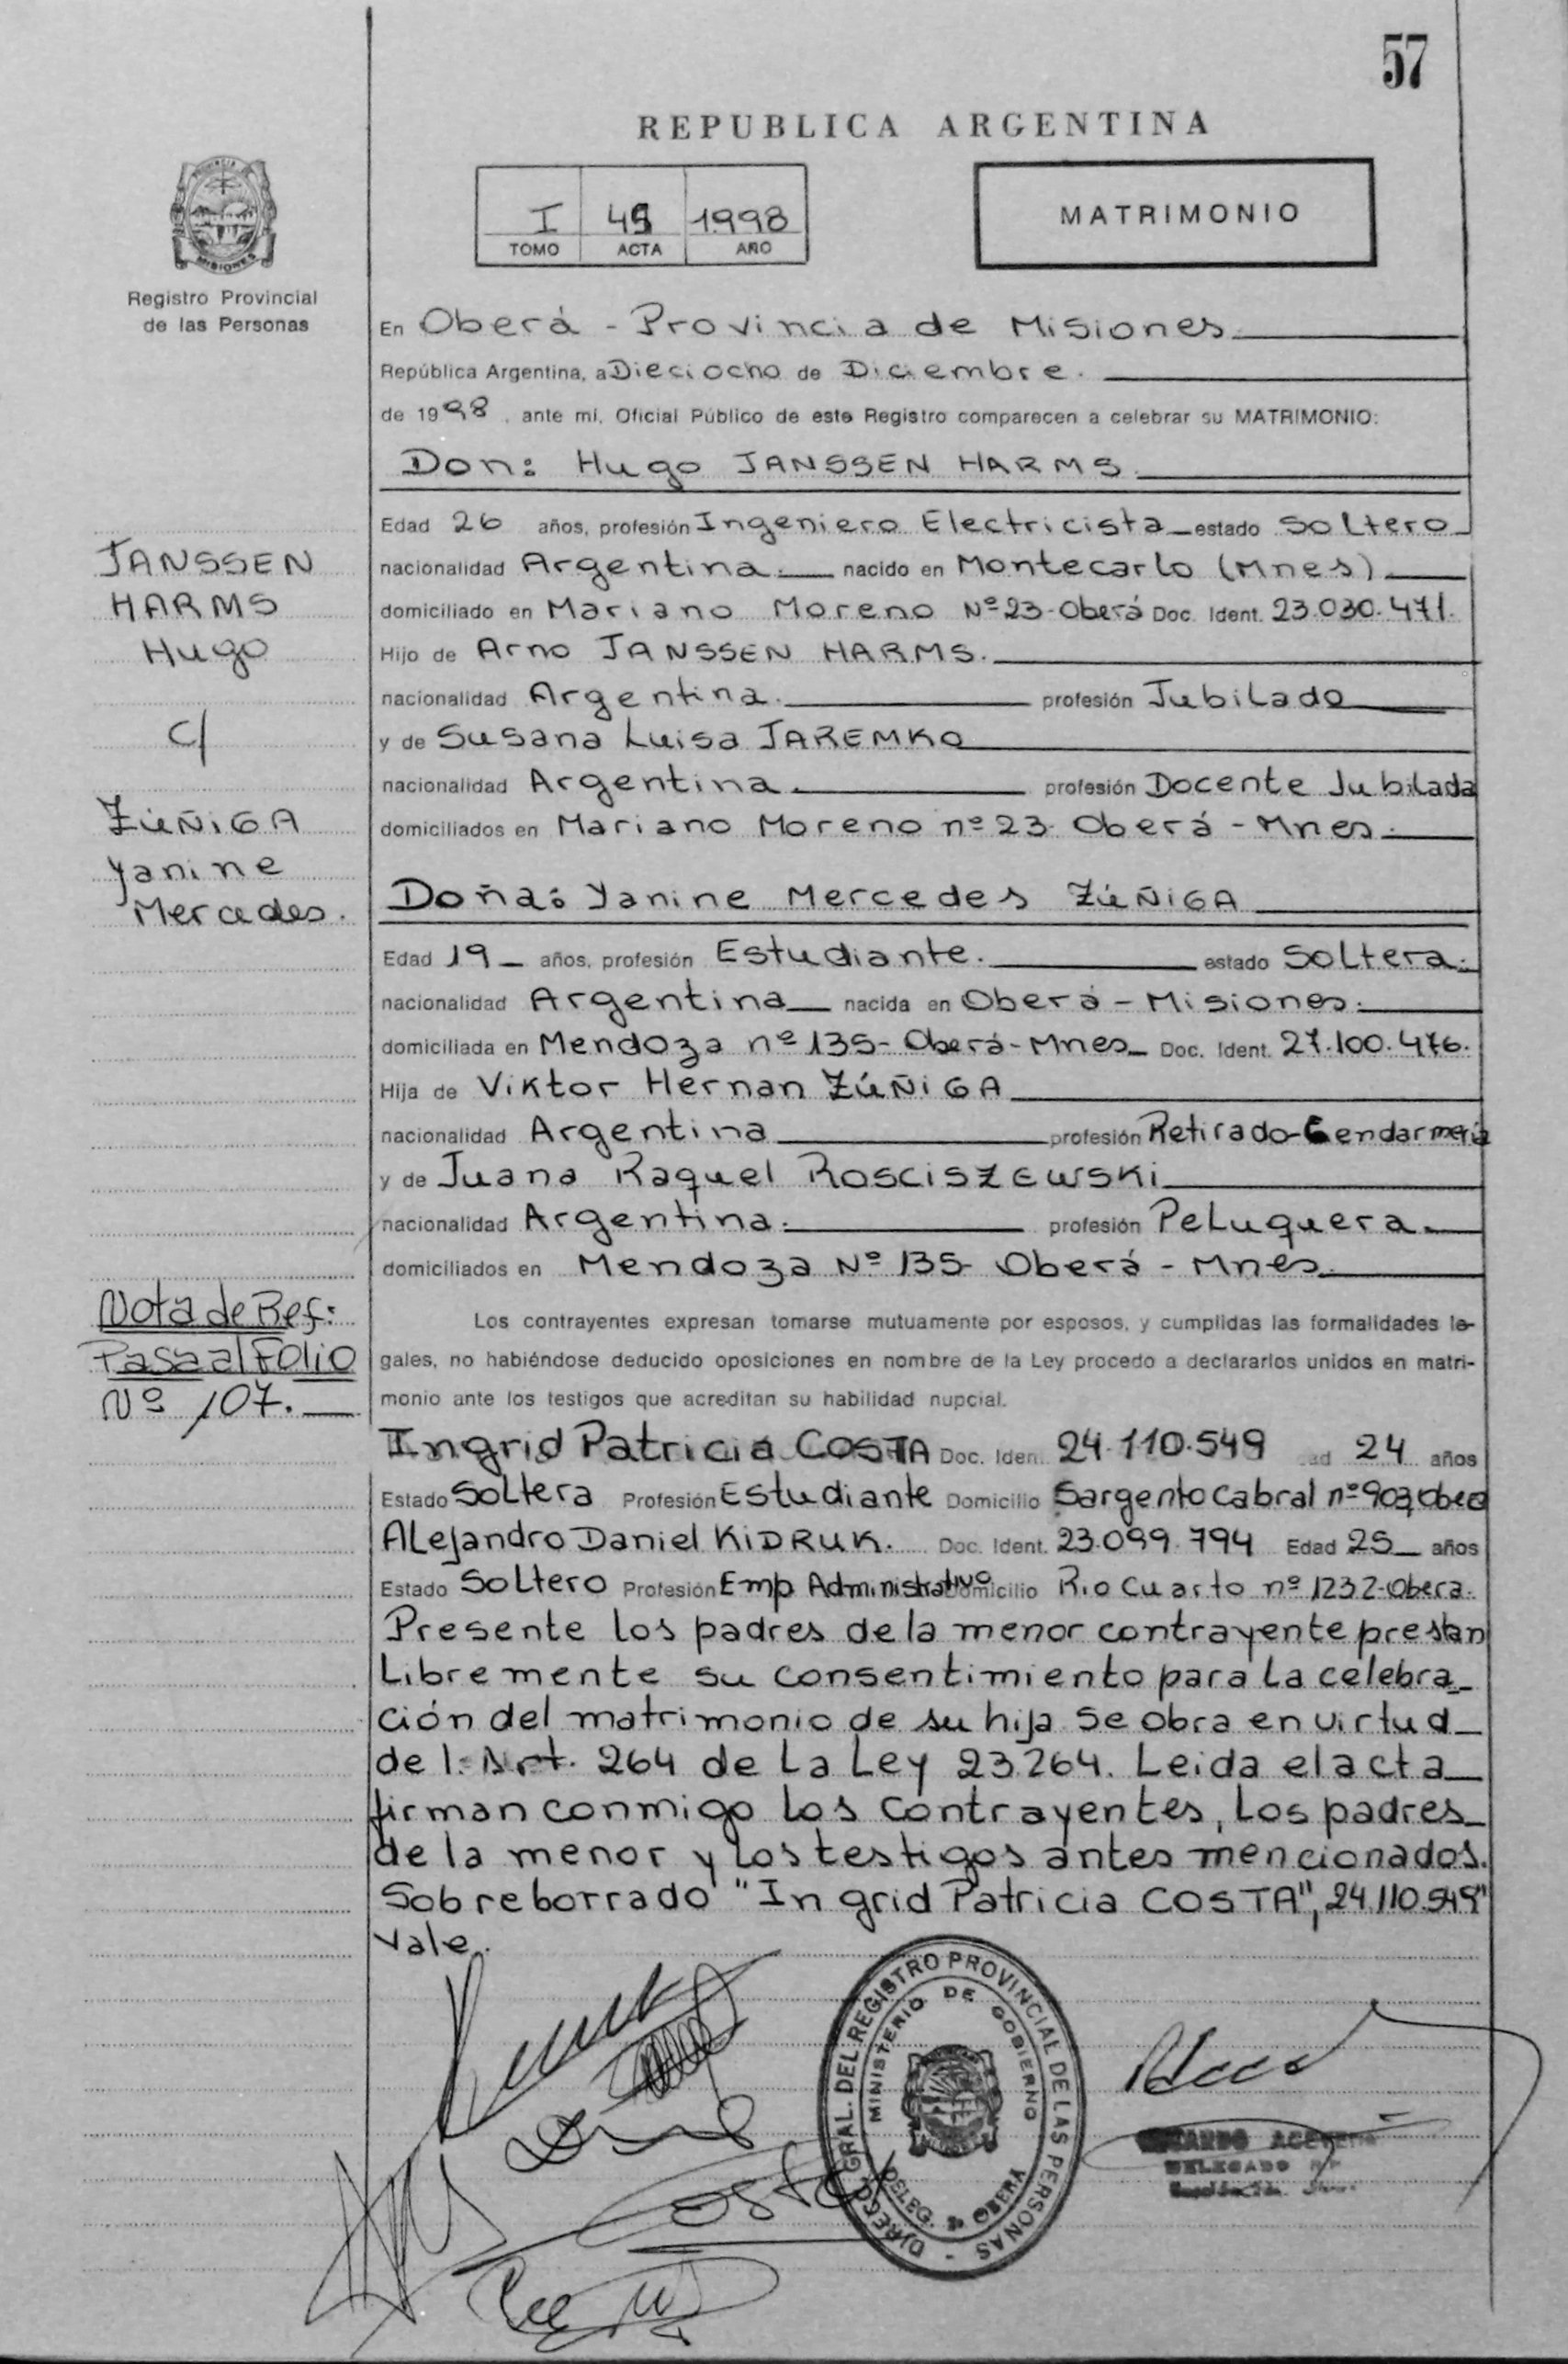 57
REPUBLICA ARGENTINA
I 49 1998
TOMO ACTA AÑO
MATRIMONIO
PROVINCIA
MISIONES
Registro Provincial
de las Personas
En Oberá - Provincia de Misiones
República Argentina, a Dieciocho de Diciembre.
de 1998, ante mi, Oficial Público de este Registro comparecen a celebrar su MATRIMONIO:
Don: Hugo JANSSEN HARMS
Edad 26 años, profesión Ingeniero Electricista estado Soltero
nacionalidad Argentina. nacido en Montecarlo (Mnes)
domiciliado en Mariano Moreno Nº 23-Oberá Doc. Ident. 23.030.471.
Hijo de Arno JANSSEN HARMS.
nacionalidad Argentina. profesión Jubilado
y de Susana Luisa JAREMKO
nacionalidad Argentina. profesión Docente Jubilada
domiciliados en Mariano Moreno nº 23 Oberá - Mnes.
Doña: Yanine Mercedes ZÚÑIGA
Edad 19 años, profesión Estudiante. estado Soltera.
nacionalidad Argentina nacida en Oberá - Misiones.
domiciliada en Mendoza nº 135- Oberá-Mnes Doc. Ident. 27.100.476.
Hija de Viktor Hernan ZÚÑIGA
nacionalidad Argentina profesión Retirado-Gendarmería
y de Juana Raquel ROSCISZEWSKI
nacionalidad Argentina. profesión Peluquera.
domiciliados en Mendoza Nº 135- Oberá - Mnes.
Los contrayentes expresan tomarse mutuamente por esposos, y cumplidas las formalidades le-
gales, no habiéndose deducido oposiciones en nombre de la Ley procedo a declararlos unidos en matri-
monio ante los testigos que acreditan su habilidad nupcial.
Ingrid Patricia COSTA Doc. Iden. 24.110.549 ad 24 años
Estado Soltera Profesión Estudiante Domicilio Sargento Cabral nº 903,
Alejandro Daniel KIDRUK. Doc. Ident. 23.099.794 Edad 25 años
Estado Soltero Profesión Emp Administrativo Domicilio Rio Cuarto nº 1232-Obera.
Presente los padres de la menor contrayente prestan
Libremente su consentimiento para la celebra
ción del matrimonio de su hija se obra en virtud
del Art. 264 de la Ley 23.264. Leida el acta
firman conmigo los contrayentes, Los padres
de la menor y los testigos antes mencionados.
Sobreborrado "Ingrid Patricia COSTA", 24.110.549"
Vale.
JANSSEN
HARMS
Hugo
c/
ZÚÑIGA
Yanine
Mercedes.
Nota de Ref:
Pasa al Folio
Nº 107.
Costa
DIREC. GRAL. DEL REGISTRO PROVINCIAL DE LAS PERSONAS -
MINISTERIO DE GOBIERNO
DELEG. OBERA
DELEGADO